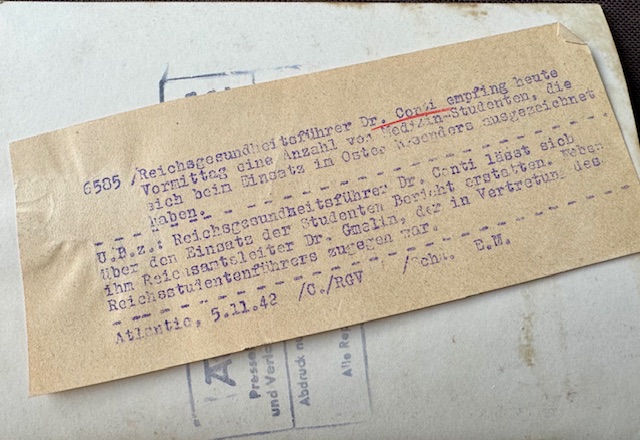 6585 /Reichsgesundheitsführer Dr. Conti empfing heute
Vormittag eine Anzahl von Medizin-Studenten, die
sich beim Einsatz im Osten besonders ausgezeichnet
haben.
U.B.z.: Reichsgesundheitsführer Dr. Conti lässt sich
über den Einsatz der Studenten Bericht erstatten. Neben
ihm Reichsamtsleiter Dr. Gmelin, der in Vertretung des
Reichsstudentenführers zugegen war.
Atlantic, 5.11.42 /C./RGV /Schw. E.M.
A
Presse
und Verla
Abdruck nu
Alle Re